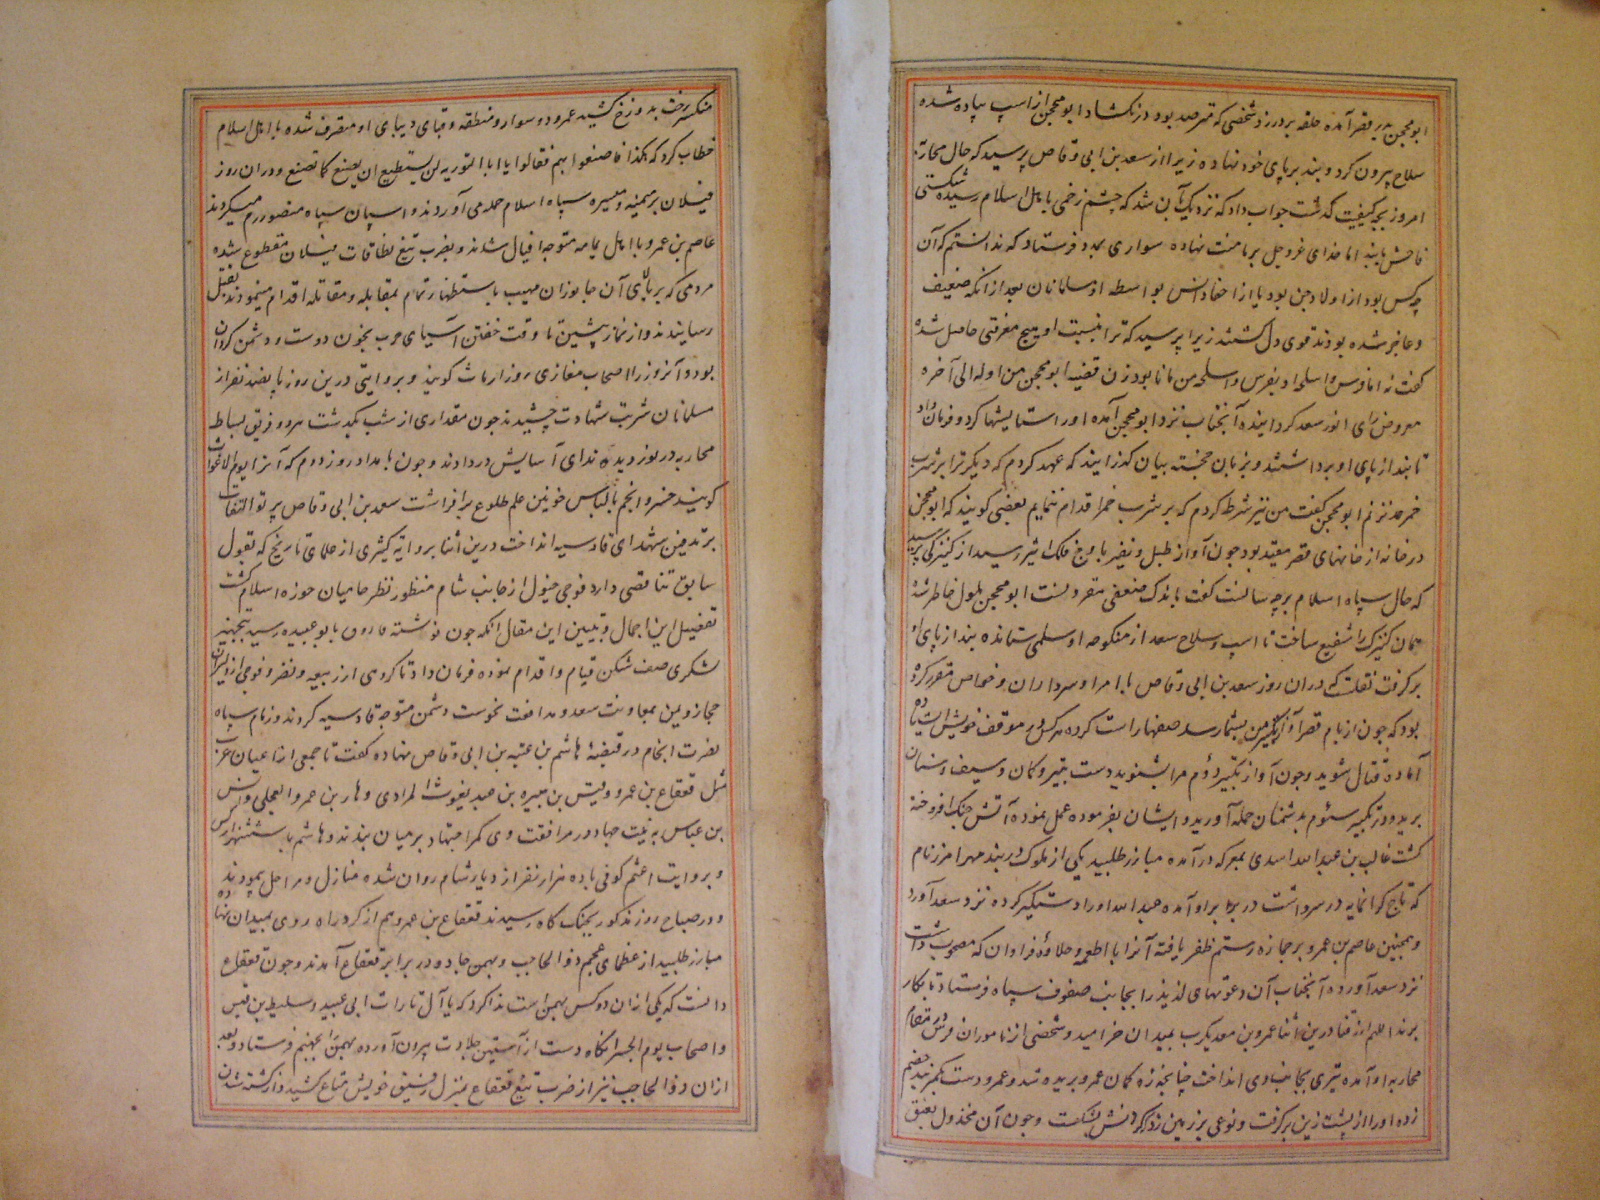 ابومحجن بدر قصر آمده حلقه بر در زد شخصی که مترصد بود در بکشاد ابومحجن از اسپ پیاده شده
سلاح بیرون کرد و بند بر پای خود نهاده زبرا از سعد بن ابی وقاص پرسید که حال محاربه
امروز بچه کیفیت گذشت جواب داد که نزدیک بآن شد که چشم زخمی باهل اسلام رسیده شکستی
فاحش یابند اما خدای عزوجل بر ما منت نهاده سواری بمدد فرستاد که ندانستم که آن
چه کس بود از اولاد جن بود یا از احفاد انس بواسطه او مسلمانان بعد از آنکه ضعیف
و عاجز شده بودند قوی دل گشتند زبرا پرسید که ترا نسبت باو هیچ معرفتی حاصل شده
گفت نه اما فرس و اسلحه او بفرس و اسلحه من مانا بود زن قضیه ابومحجن من اوله الی آخره
معروض رای انور سعد کردانیده آنجناب نزد ابومحجن آمده او را ستایشها کرد و فرمان داد
تا بند از پای او برداشتند و بزبان خجسته بیان گذرانید که عهد کردم که دیگر ترا بر شرب
خمر حد نزنم ابومحجن گفت من نیز شرط کردم که بر شرب خمر اقدام ننمایم بعضی گویند که ابومحجن
در خانه از خانهای قصر مقید بود چون آواز طبل و نفیر باوج فلک اثیر رسید از کنیزکی پرسید
که حال سپاه اسلام بر چه سانست گفت باندک ضعفی متفرد است ابومحجن ملول خاطر شده
همان کنیزک را شفیع ساخت تا اسپ و سلاح سعد از منکوحه او سلمی ستانده بند از پای او
برگرفت نقلست که دران روز سعد بن ابی وقاص با امرا و سرداران و خواص مقرر کرده
بود که چون از بام قصر آواز تکبیر من بشما رسد صفها راست کرده هر کس در موقف خویش ایستاده
آماده قتال شوید و چون آواز تکبیر دوم مرا بشنوید دست بتیر و کمان و سیف و سنان
برید و در تکبیر سئوم بدشمنان حمله آورید و ایشان بفرموده عمل نموده آتش جنک افروخته
گشت غالب بن عبد الله اسدی بمعرکه درآمده مبارز طلبید یکی از ملوک دربند هرمز نام
که تاج گرانمایه در سر داشت در برابر او آمده عبد الله او را دستگیر کرده نزد سعد آورد
و همچنین عاصم بن عمرو بر جمازه رستم ظفر یافته آنرا با اطعمه و حلاوه فراوان که مصحوب داشت
نزد سعد آورده آنجناب آن دعوتهای لذیذ را بجانب صفوف سپاه فرستاد تا بکار
برند درین اثنا عمرو بن معدیکرب بمیدان خرامید و شخصی از ناموران فرس بمقام
محاربه او آمده تیری بجانب وی انداخت چنانچه زه کمان عمرو بریده شد و عمرو دست بکمربند خصم
زده او را از پشت زین برگرفت و نوعی بر زمین زد که گردنش بشکست و چون آن مخذول بعنق
منکسر رخت بدوزخ کشید عمرو دو سوار و منطقه و قبای دیبای او متصرف شده با اهل اسلام
خطاب کرد که هکذا فاصنعوا بهم فقالوا یا ابا الثور من یستطیع ان یصنع کما تصنع و دران روز
فیلان بر میمنه و میسره سپاه اسلام حمله می آوردند و اسپان سپاه منصور رم میکردند
عاصم بن عمرو با اهل یمامه متوجه افیال شدند و بضرب تیغ نطاقات فیلان مقطوع شده
مردمی که بر بالای آن جانوران مهیب باستظهار تمام بمقابله و مقاتله اقدام مینمودند بقتل
رسانیدند و از نماز پیشین تا وقت خفتن آسیای حرب بخون دوست و دشمن گردان
بود و آنروز را اصحاب مغازی روز ارماث گویند و بروایتی درین روز پانصد نفر از
مسلمانان شربت شهادت چشیدند چون مقداری از شب بگذشت هر دو فریق بساط
محاربه در نوردیده ندای آسایش در دادند و چون بامداد روز دوم که آنرا یوم الاغواث
گویند خسرو انجم با لباس خونین علم طلوع برافراشت سعد بن ابی وقاص پرتو التفات
بر تدفین شهدای قادسیه انداخت درین اثنا بروایه کثیری از علمای تاریخ که بقول
سابق تناقضی دارد فوجی خیول از جانب شام منظور نظر حامیان حوزه اسلام گشت
تفصیل این اجمال و تبیین این مقال آنکه چون نوشته فاروق بابو عبیده رسید بتجهیز
لشکری صف شکن قیام و اقدام نموده فرمان داد تا گروهی از ربیعه و مضر و فوجی از دلیران
حجاز و یمن بمعاونت سعد و مدافعت نحوست دشمن متوجه قادسیه گردند و زمام سپاه
نصرت انجام در قبضه هاشم بن عتبه بن ابی وقاص نهاده گفت تا جمعی از اعیان عرب
مثل قعقاع بن عمرو و قیس بن هبیره بن عبد یغوث المرادی و هار بن عمرو العجلی و انس
بن عباس به نیت جهاد در مرافقت وی کمر اجتهاد بر میان بندند و هاشم با ششهزار کس
و بروایت اعثم کوفی با ده هزار نفر از دیار شام روان شده منازل و مراحل پیمودند
و در صباح روز مذکور بجنک گاه رسیدند قعقاع بن عمرو هم از گرد راه روی بمیدان نهاده
مبارز طلبید از عظمای عجم ذو الحاجب و بهمن جادو در برابر قعقاع آمدند و چون قعقاع
دانست که یکی ازان دو کس بهمن است ندا کرد که یا آل ثارات ابی عبید و سلیط بن قیس
و اصحاب یوم الجسر آنگاه دست از آستین جلادت بیرون آورده بهمن را بجهنم فرستاد و بعد
ازان ذو الحاجب نیز از ضرب تیغ قعقاع بمنزل رفیق خویش متاع کشید و از کشته شدن